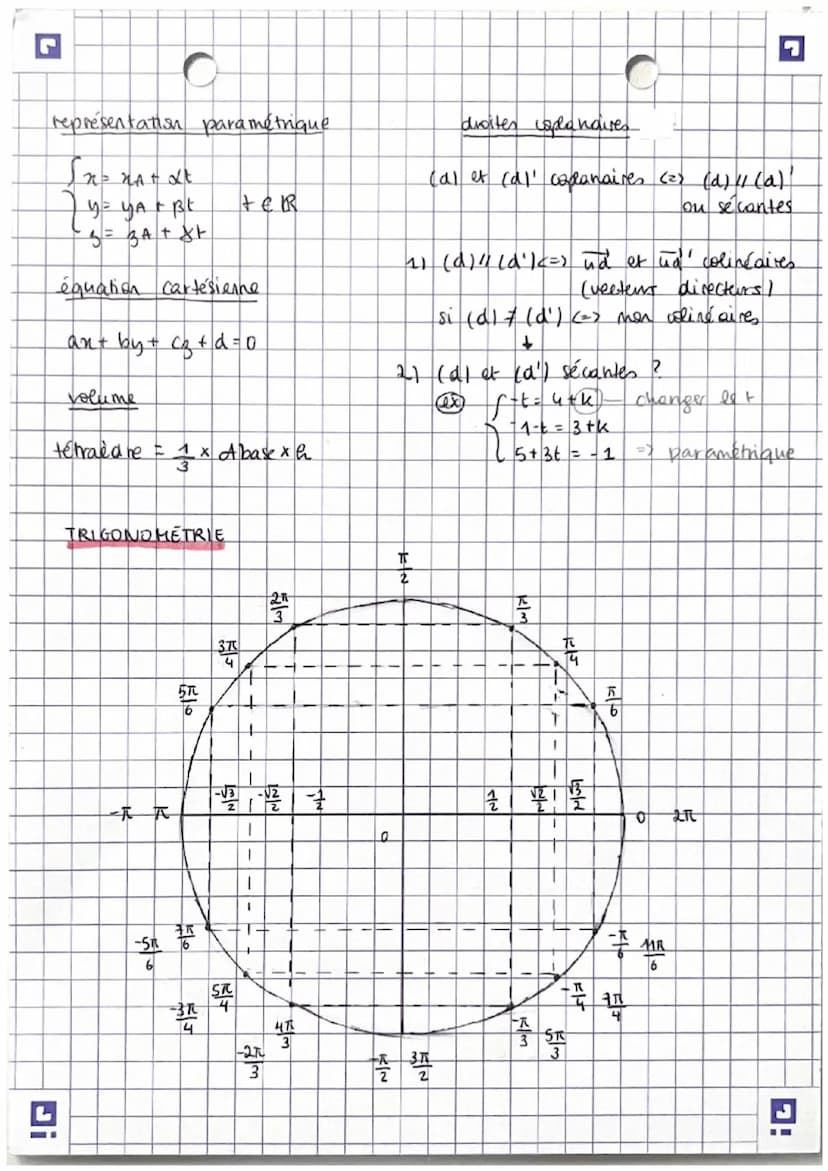 représentation paramétrique
{ x = xA + αt
y = yA + βt t ∈ ℝ
z = zA + γt
équation cartésienne
ax + by + cz + d = 0
volume
tétraèdre = 1/3 × Abase × h
droites coplanaires
(d) et (d)' coplanaires <=> (d) // (d)'
ou sécantes
1) (d) // (d') <=> u⃗d et u⃗d' colinéaires
(vecteurs directeurs)
si (d) ∦ (d') <=> non colinéaires
↓
2) (d) et (d') sécantes ?
ex { -t = 4 + k — changer les t
-1-t = 3+k
5+3t = -1 => paramétrique
TRIGONOMÉTRIE
π/2
2π/3 π/3
3π/4 π/4
5π/6 π/6
-√3/2 -√2/2 -1/2 1/2 √2/2 √3/2
-π π 0 2π
0
-5π/6 7π/6 -π/6 11π/6
-3π/4 5π/4 -π/4 7π/4
-2π/3 4π/3 -π/3 5π/3
-π/2 3π/2